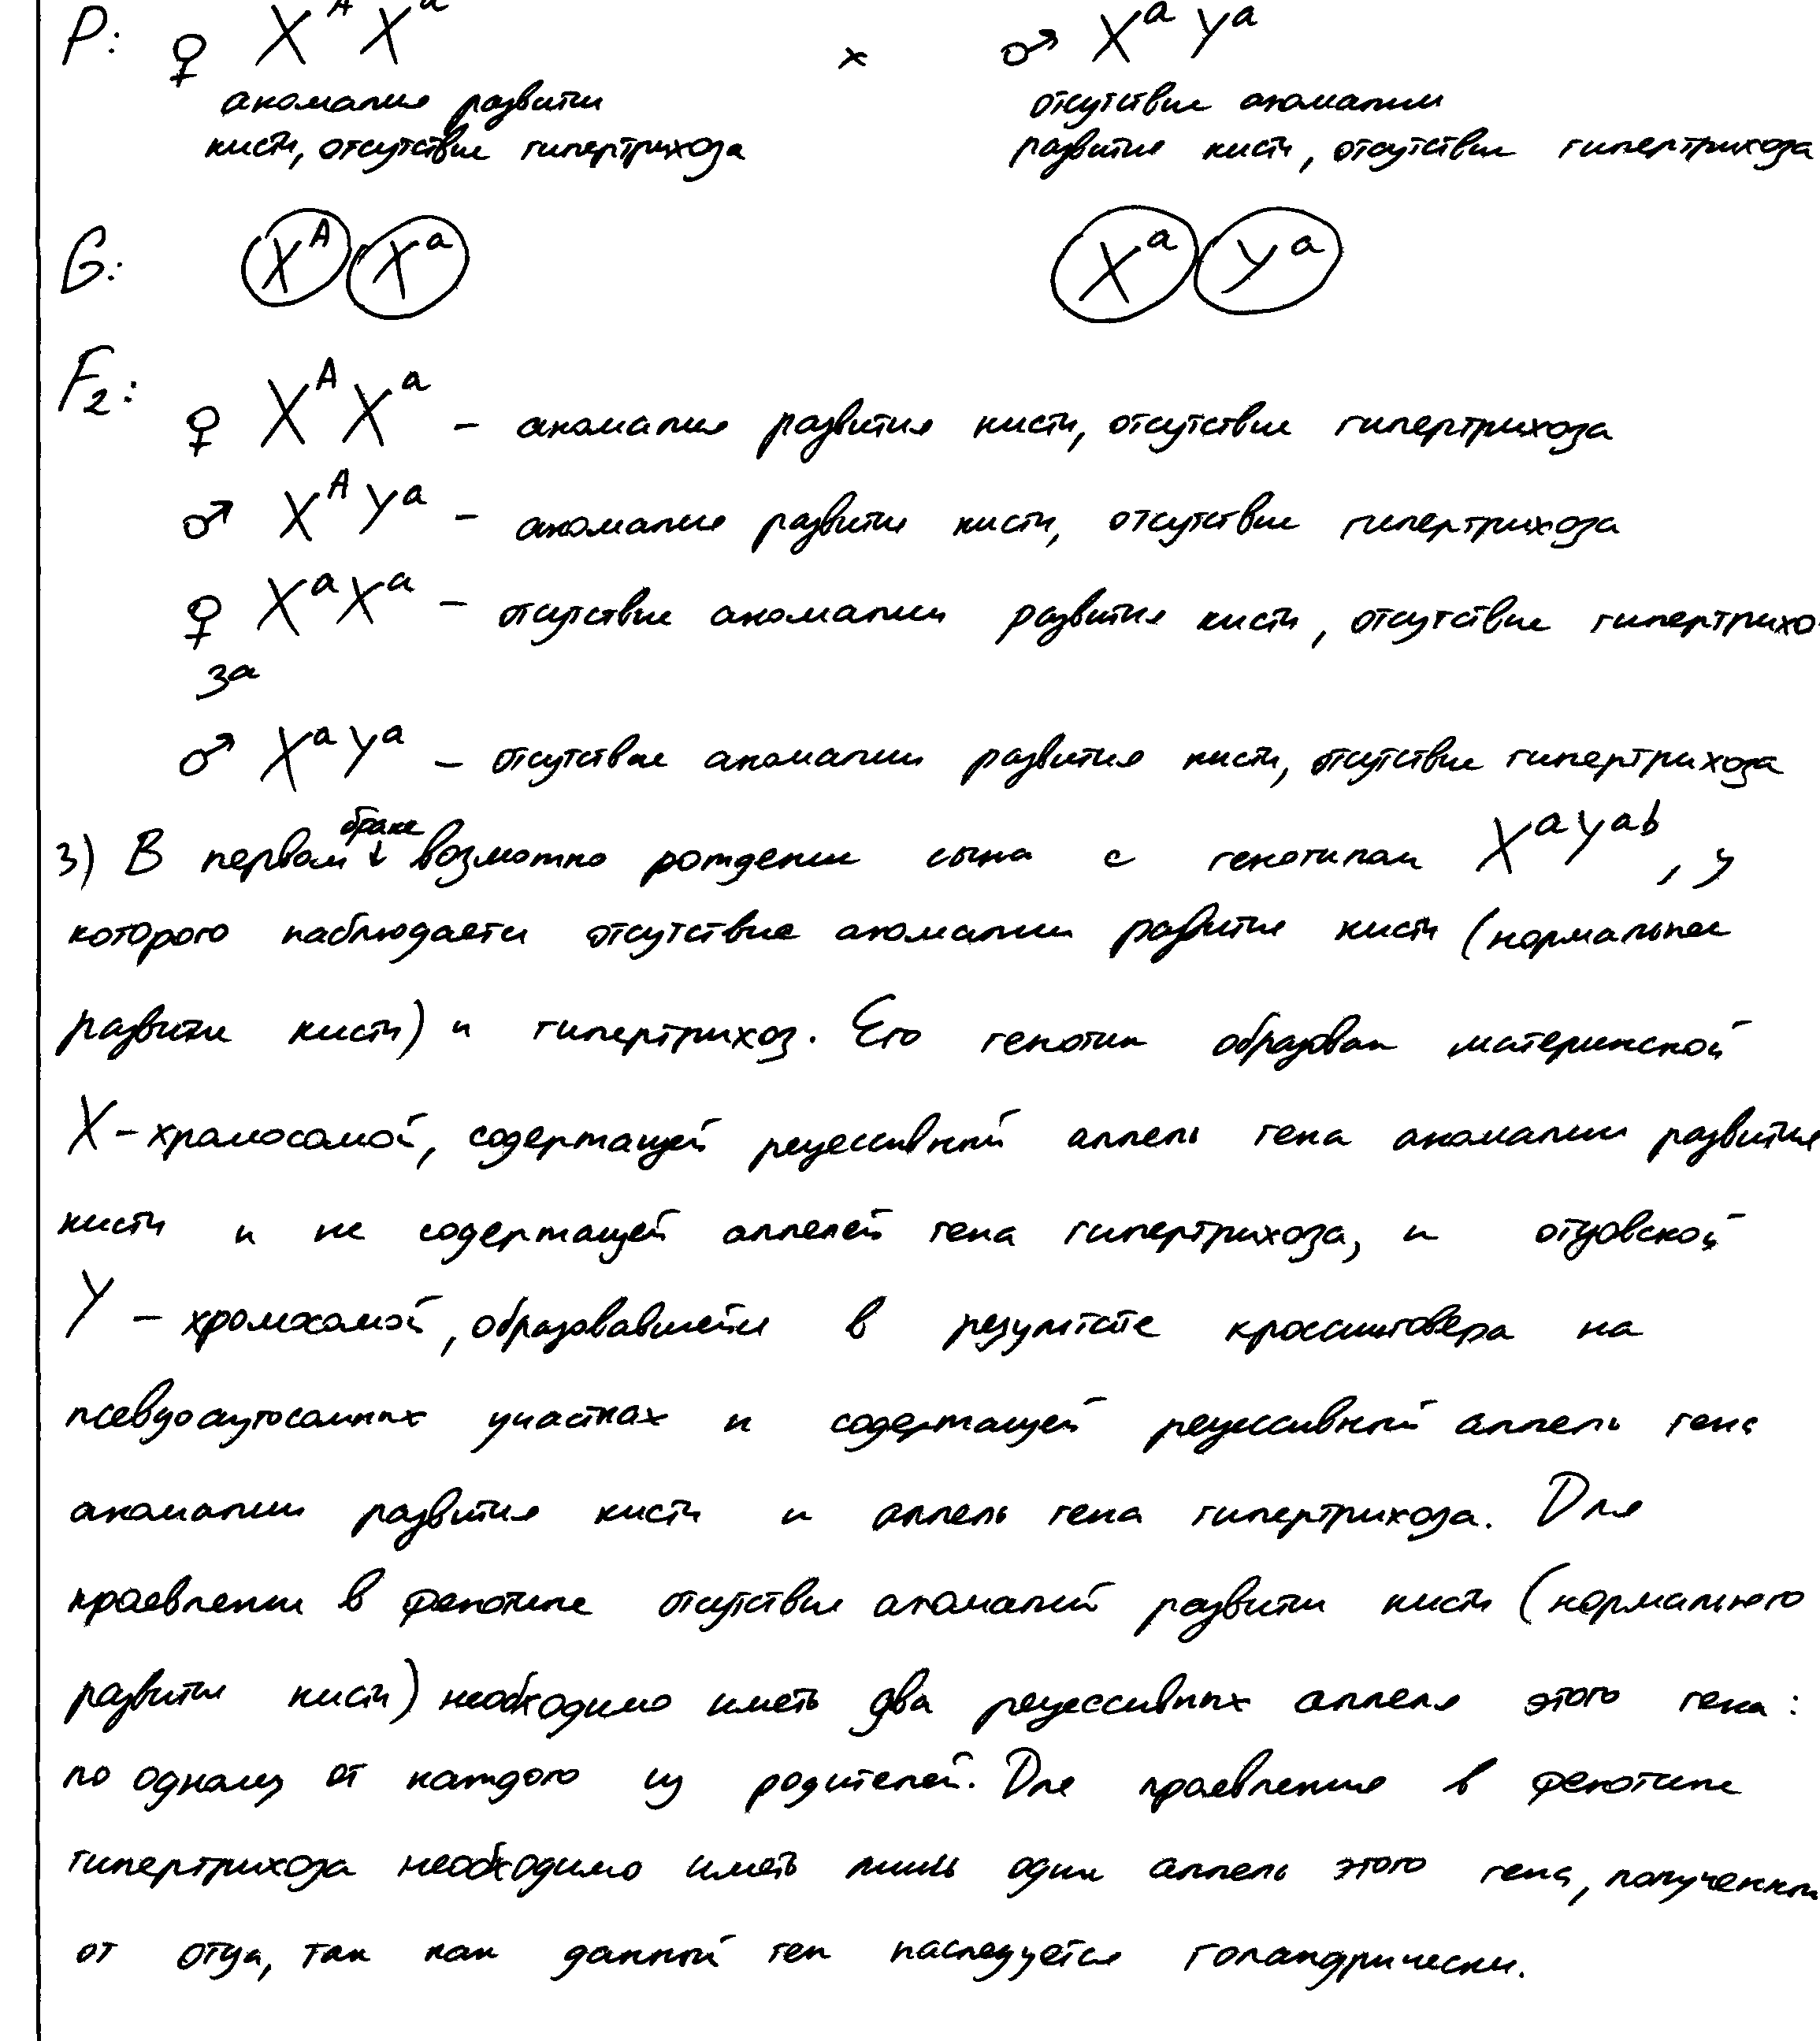 P: ♀ X^A X^a × ♂ X^a Y^a
аномалия развития отсутствие аномалии
кисти, отсутствие гипертрихоза развития кисти, отсутствие гипертрихоза
G: X^A X^a X^a Y^a
F2:
♀ X^A X^a – аномалия развития кисти, отсутствие гипертрихоза
♂ X^A Y^a – аномалия развития кисти, отсутствие гипертрихоза
♀ X^a X^a – отсутствие аномалии развития кисти, отсутствие гипертрихо-
за
♂ X^a Y^a – отсутствие аномалии развития кисти, отсутствие гипертрихоза
3) В первом браке возможно рождение сына с генотипом X^a Y^ab, у
которого наблюдается отсутствие аномалии развития кисти (нормальное
развитие кисти) и гипертрихоз. Его генотип образован материнской
X – хромосомой, содержащей рецессивный аллель гена аномалии развития
кисти и не содержащей аллелей гена гипертрихоза, и отцовской
Y – хромосомой, образовавшейся в результате кроссинговера на
псевдоаутосомных участках и содержащей рецессивный аллель гена
аномалии развития кисти и аллель гена гипертрихоза. Для
проявления в фенотипе отсутствия аномалий развития кисти (нормального
развития кисти) необходимо иметь два рецессивных аллеля этого гена:
по одному от каждого из родителей. Для проявления в фенотипе
гипертрихоза необходимо иметь лишь один аллель этого гена, полученный
от отца, так как данный ген наследуется голандрически.